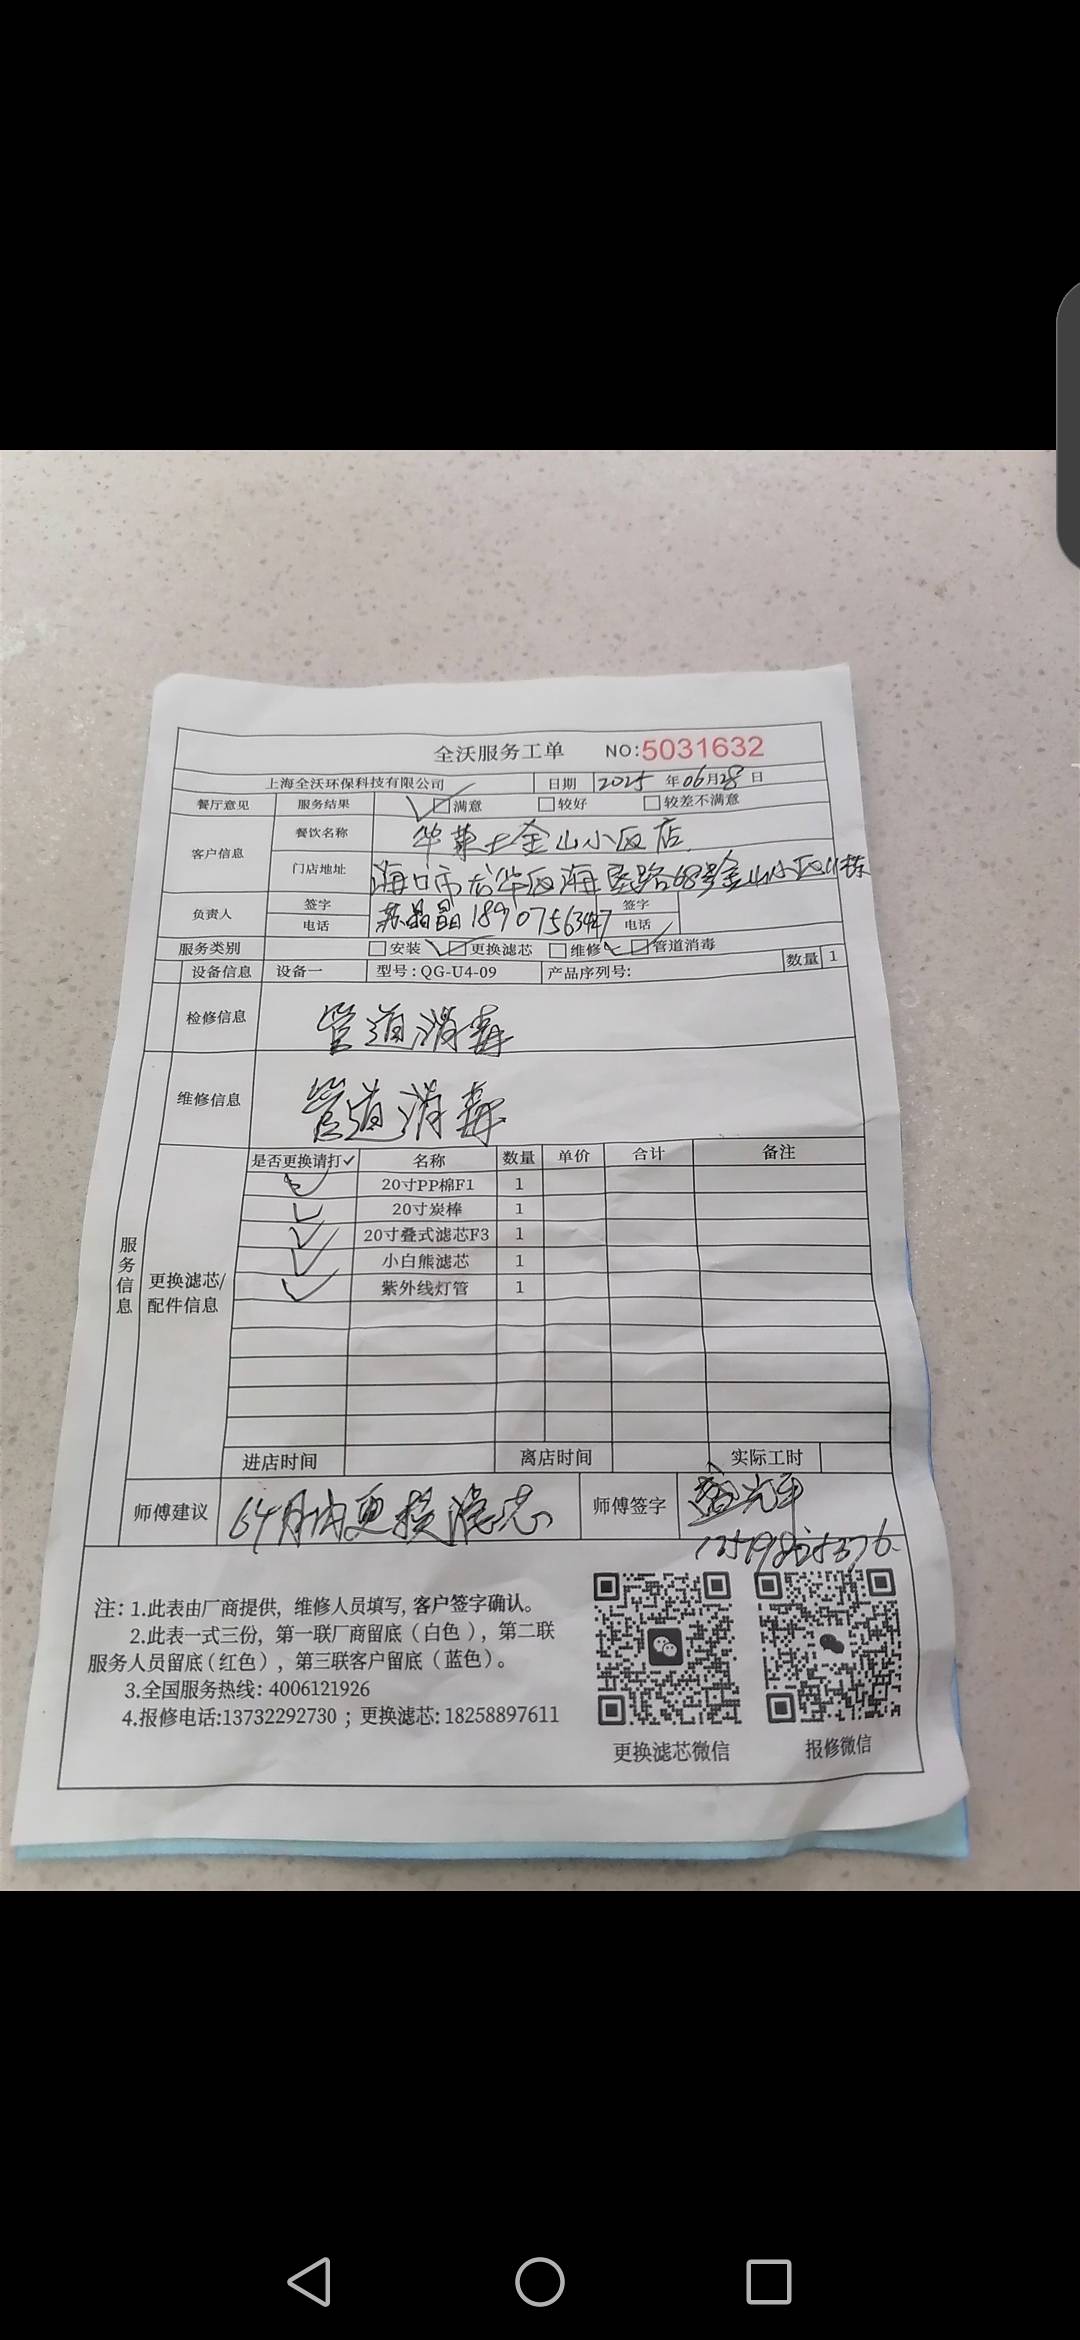 全沃服务工单 NO:5031632
上海全沃环保科技有限公司 日期 2025年06月28日
餐厅意见 服务结果 满意 较好 较差不满意
客户信息 餐饮名称 华莱士金山小区店
门店地址 海口市龙华区海垦路68号金山小区11栋
负责人 签字 苏晶晶 签字
电话 18907563447 电话
服务类别 安装 更换滤芯 维修 管道消毒
设备信息 设备一 型号:QG-U4-09 产品序列号: 数量 1
检修信息 管道消毒
维修信息 管道消毒
服务信息
更换滤芯/配件信息
是否更换请打✓ 名称 数量 单价 合计 备注
✓ 20寸PP棉F1 1
✓ 20寸炭棒 1
✓ 20寸叠式滤芯F3 1
✓ 小白熊滤芯 1
✓ 紫外线灯管 1
进店时间 离店时间 实际工时
师傅建议 6个月内更换滤芯 师傅签字
注: 1.此表由厂商提供, 维修人员填写, 客户签字确认。
2.此表一式三份, 第一联厂商留底（白色）, 第二联
服务人员留底(红色), 第三联客户留底（蓝色)。
3.全国服务热线: 4006121926
4.报修电话:13732292730 ; 更换滤芯: 18258897611
更换滤芯微信 报修微信